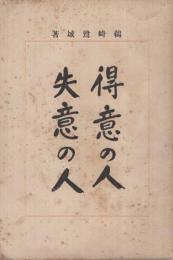 鵜崎鷺城著
得意の人
失意の人